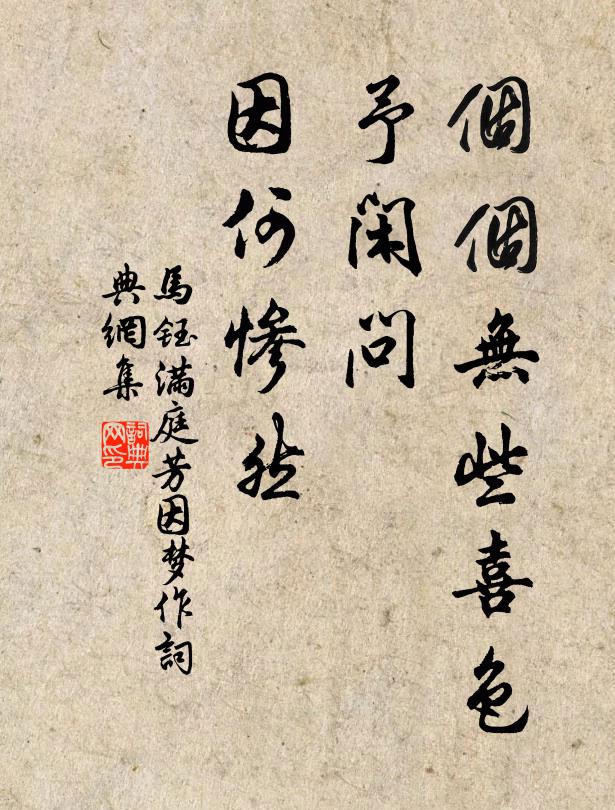 個個無些喜色
予閑問
因何慘然
馬鈺滿庭芳因梦作詞
典網集
詞典
网印